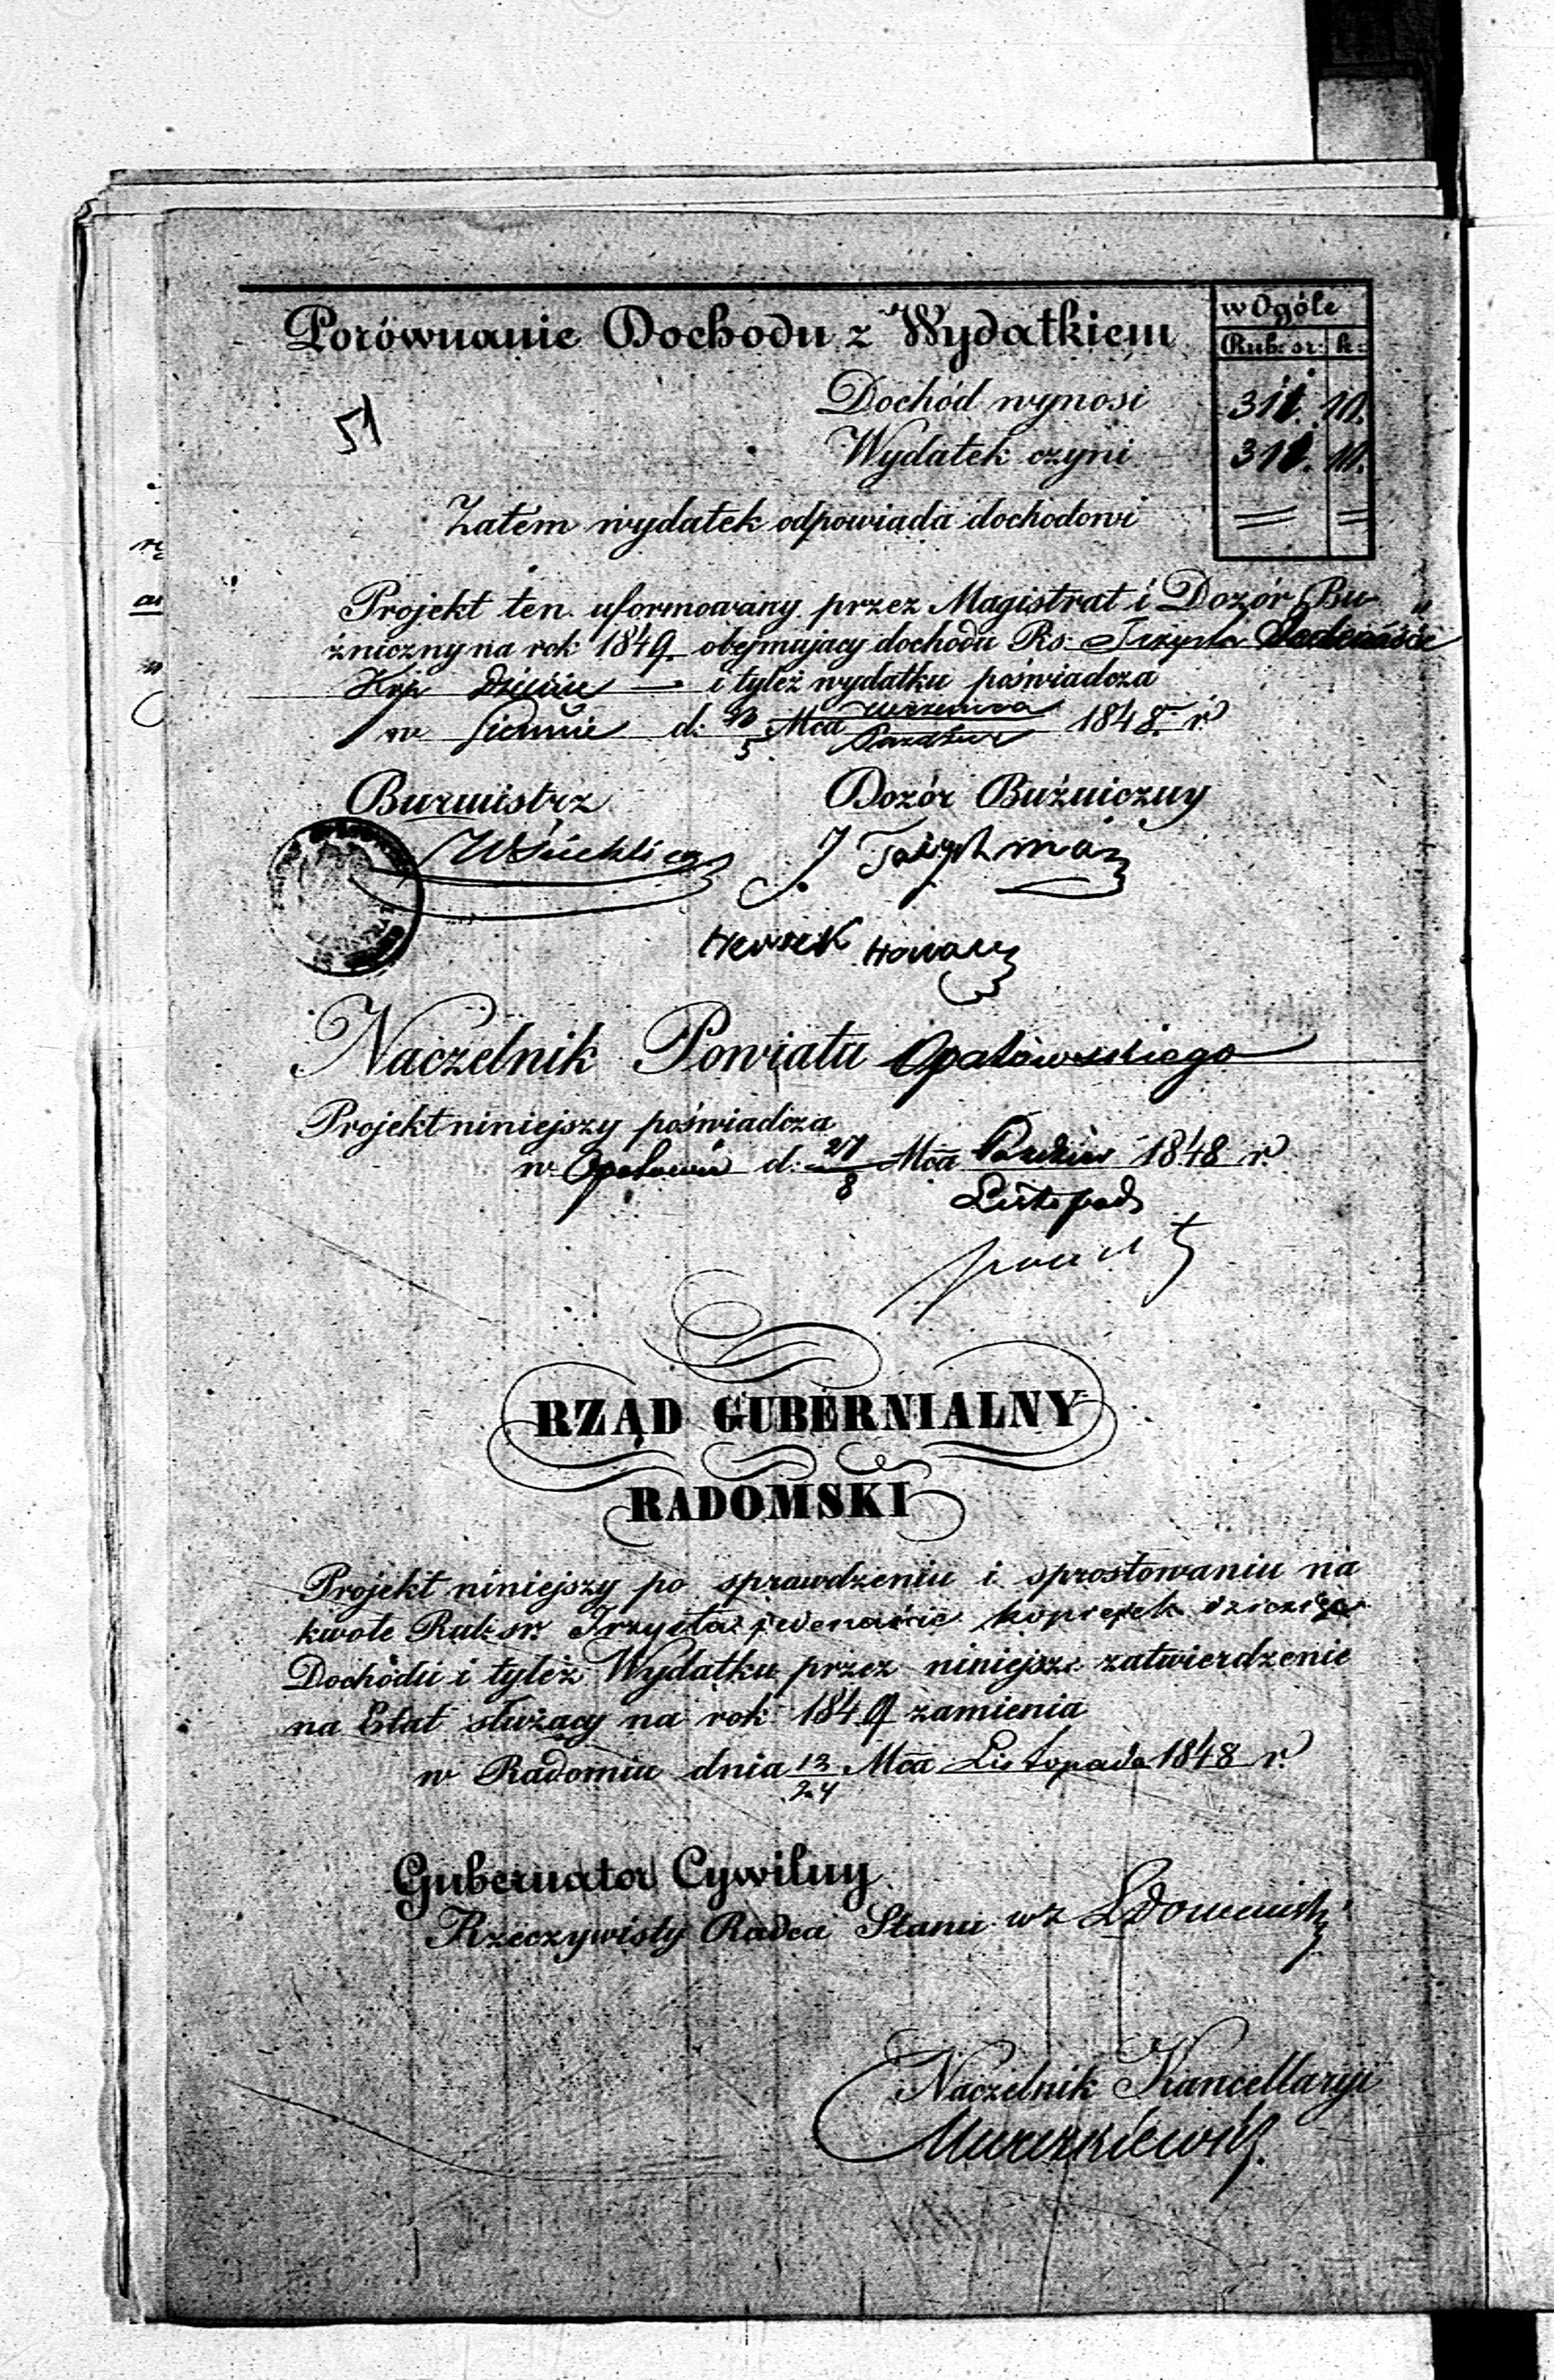 Porównanie Dochodu z Wydatkiem
w Ogóle
Rub: sr: k:
51
Dochód wynosi 311. 10.
Wydatek czyni 311. 10.
Zatem wydatek odpowiada dochodowi
Projekt ten uformowany przez Magistrat i Dozór Bu-
żniczny na rok 1849. obejmujący dochodu Rs: Trzysta Jedenaście
Kop i tyleż wydatku poświadcza
w d: Mca 1848. r.
Burmistrz
Dozór Bużniczny
Hersek
Naczelnik Powiatu Opatowskiego
Projekt niniejszy poświadcza
w Opatowie d: 27/8 Mca Paździer 1848 r.
Listopad
RZĄD GUBERNIALNY
RADOMSKI
Projekt niniejszy po sprawdzeniu i sprostowaniu na
kwotę Rub: sr. Trzysta jedenaście kopiejek dziesięć
Dochodu i tyleż Wydatku przez niniejsze zatwierdzenie
na Etat służący na rok 1849 zamienia
w Radomiu dnia 13/24 Mca Listopada 1848 r.
Gubernator Cywilny
Rzeczywisty Radca Stanu wz
Naczelnik Kancellaryi